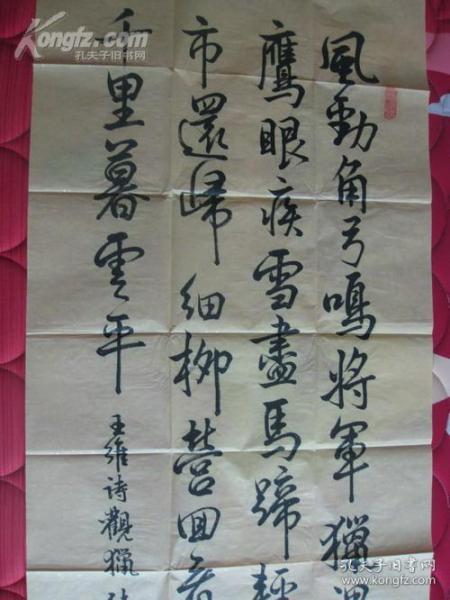 風勁角弓鳴將軍獵渭
鷹眼疾雪盡馬蹄輕
市還歸細柳營回看
千里暮雲平
王維詩觀獵
Kongfz.com
孔夫子旧书网
孔夫子旧书网
www.kongfz.com